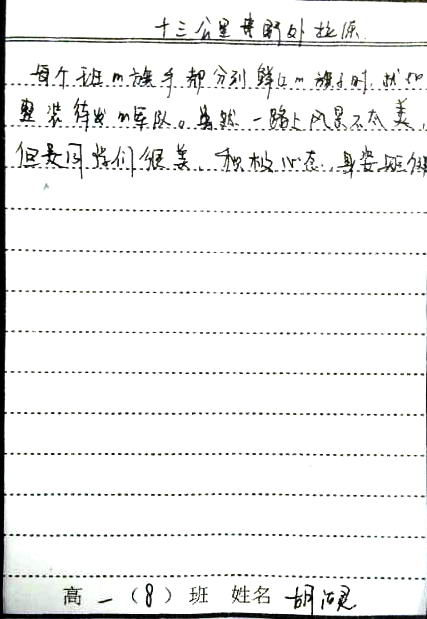 十三公里野外拉练
每个班的旗手都分列鲜红的旗子时,就如
整装待发的军队。虽然一路上风景不太美,
但是同学们很美,积极心态,身姿矫健
高一(8)班 姓名 胡